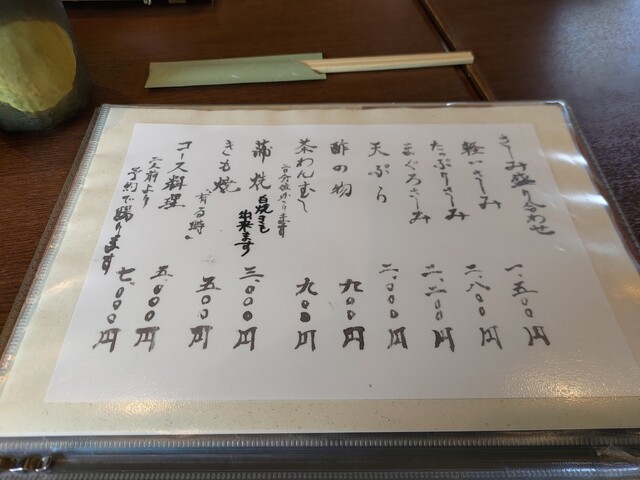 さしみ盛り合わせ
軽いさしみ
たっぷりさしみ
まぐろさしみ
天ぷら
酢の物
茶わんむし
二十分位かかります
蒲焼
白焼きも
出来ます
きも焼
"有る時"
コース料理
二人前より
予約で賜ります
一、五〇〇円
二、八〇〇円
二、二〇〇円
二、〇〇〇円
九〇〇円
九〇〇円
三、〇〇〇円
五〇〇円
五、〇〇〇円
七、〇〇〇円